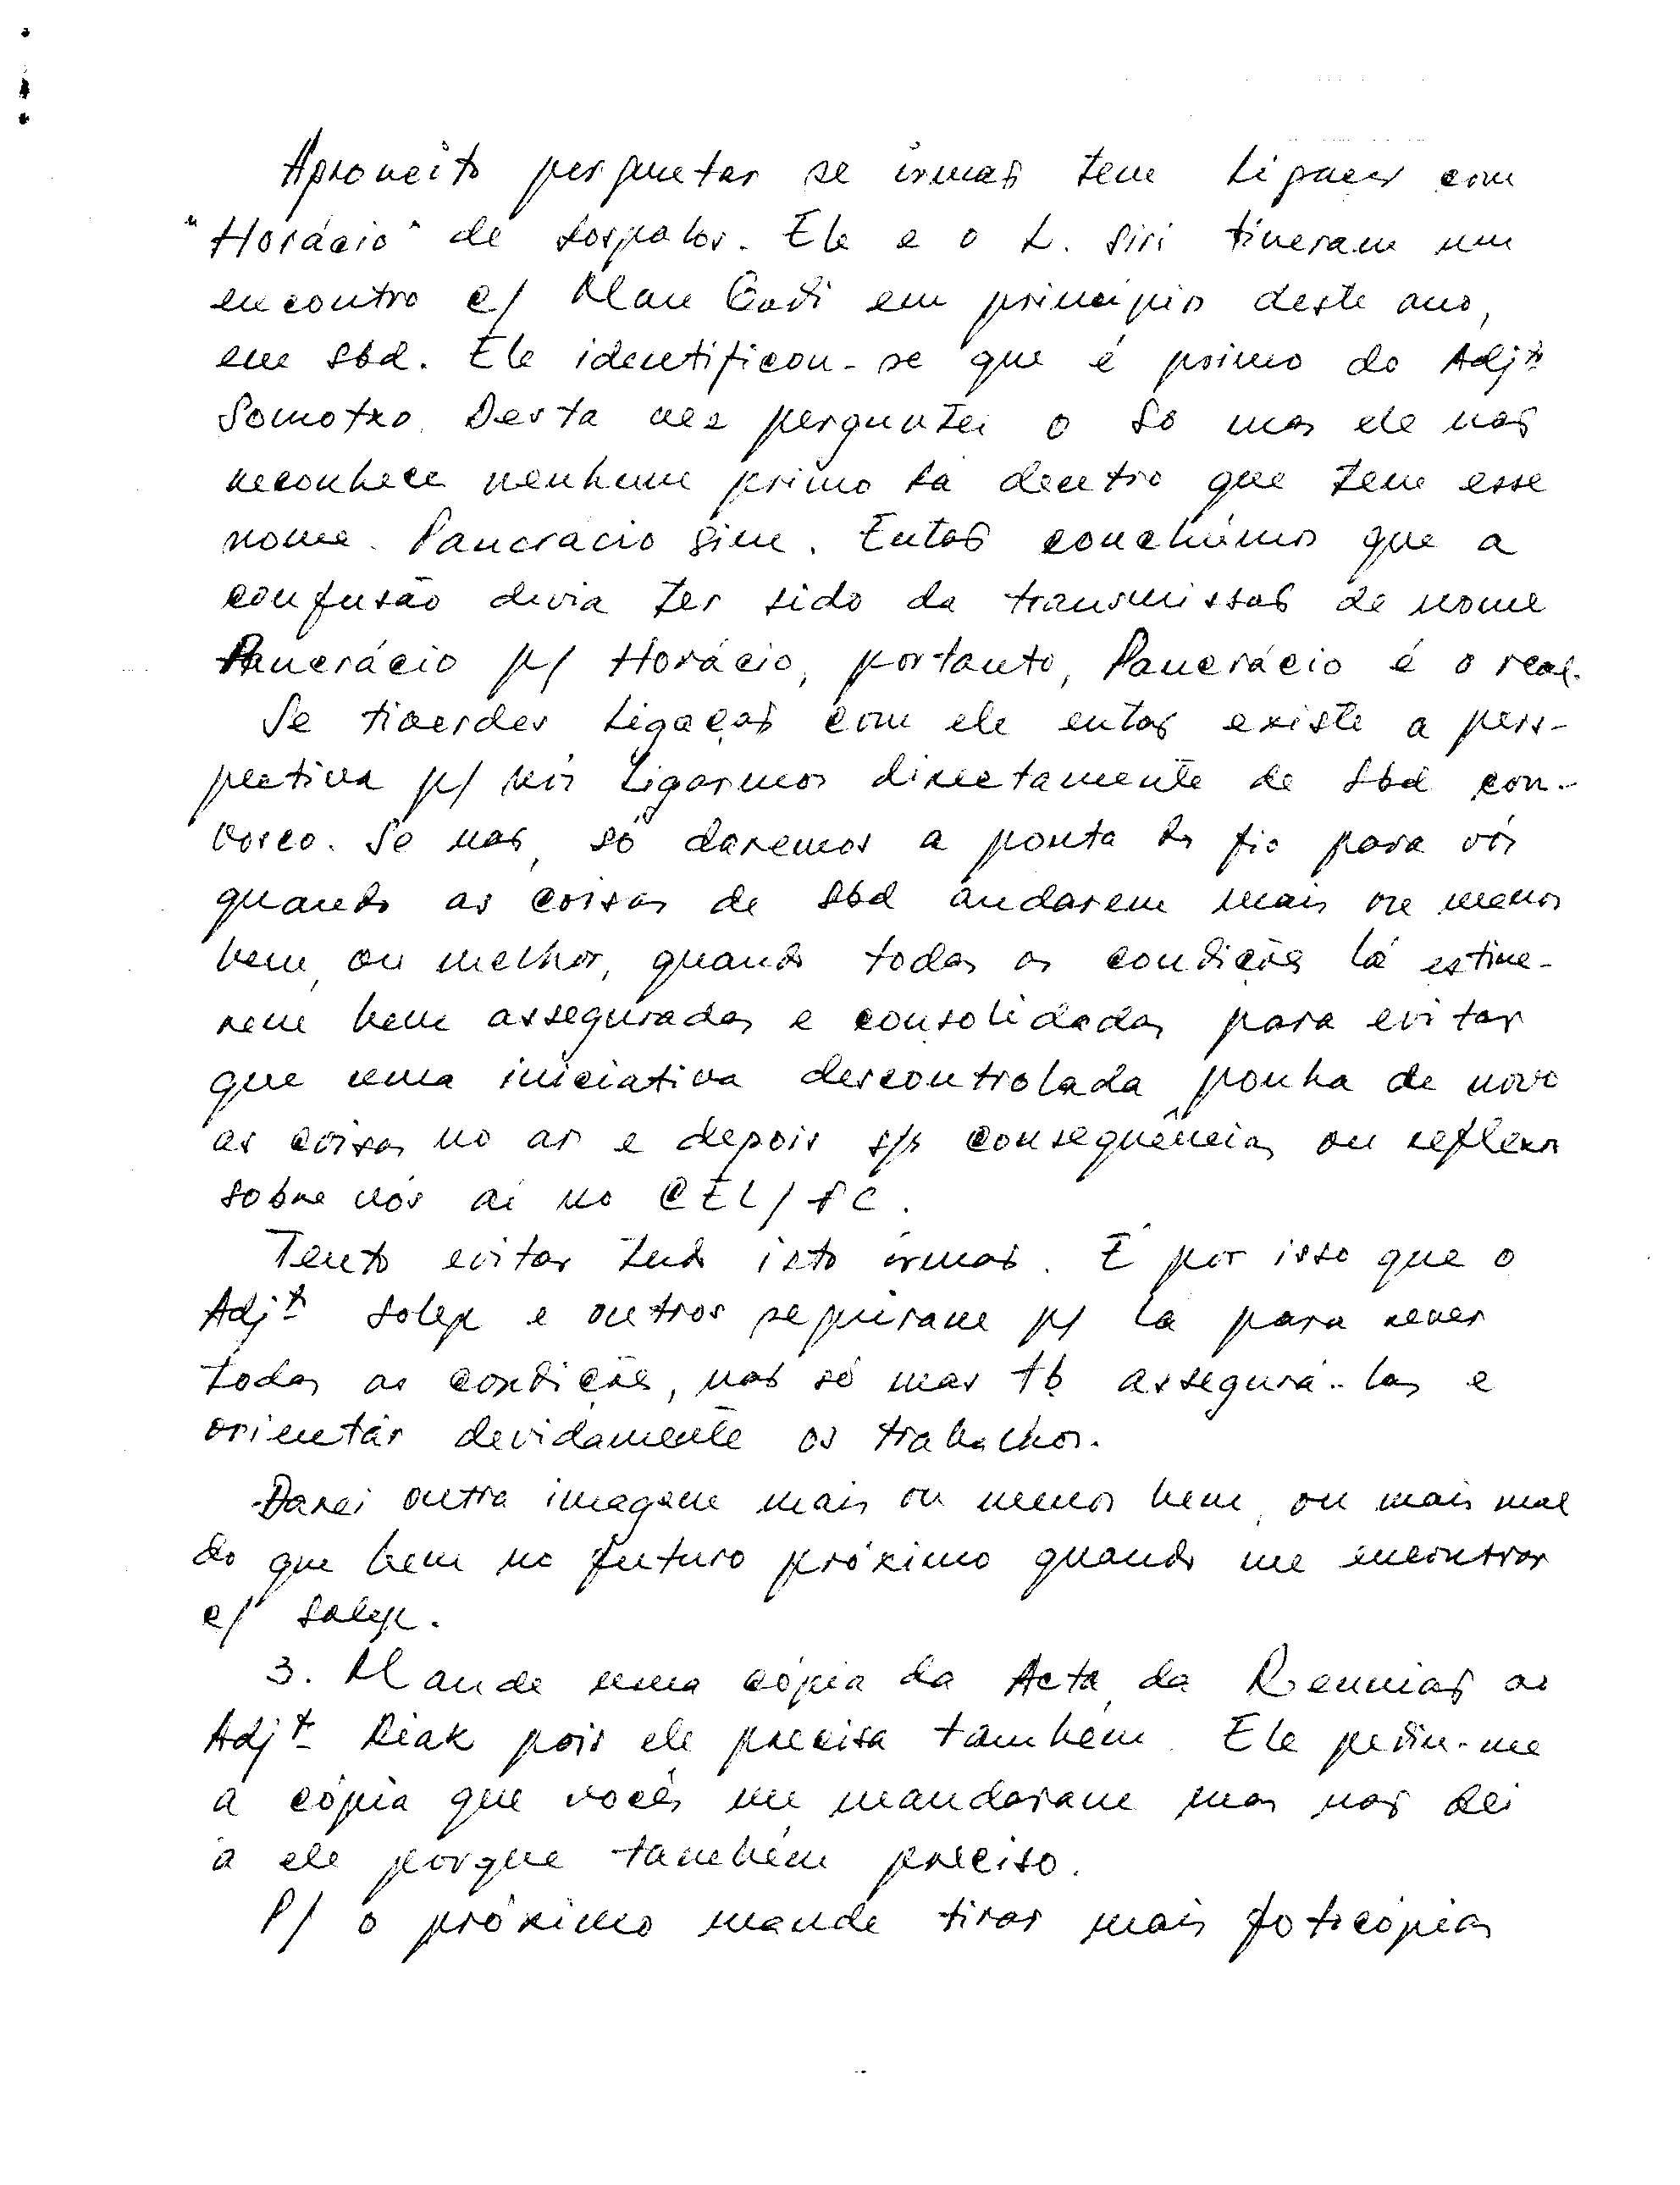 Aproveito perguntar se irmão tem ligações com
"Horácio" de Lospalos. Ele e o L. Siri tiveram um
encontro c/ Mau Godi em princípio deste ano,
em Sbd. Ele identificou-se que é primo do Adjto
Somotxo. Desta vez perguntei o So mas ele não
reconhece nenhum primo lá dentro que tem esse
nome. Pancrácio sim. Então concluímos que a
confusão devia ter sido da transmissão de nome
Pancrácio p/ Horácio, portanto, Pancrácio é o real.
Se tiverdes ligação com ele então existe a pers-
pectiva p/ nós ligarmos directamente de Sbd con-
vosco. Se não, só daremos a ponta do fio para vós
quando as coisas de Sbd andarem mais ou menos
bem, ou melhor, quando todas as condições lá estive-
rem bem asseguradas e consolidadas para evitar
que uma iniciativa descontrolada ponha de novo
as coisas no ar e depois s/s consequências ou reflexos
sobre vós aí no CEL/FC.
Tento evitar tudo isto irmão. É por isso que o
Adjto Solep e outros seguiram p/ lá para rever
todas as condições, não só mas tb assegurá-las e
orientar devidamente os trabalhos.
Darei outra imagem mais ou menos bem, ou mais mal
do que bem no futuro próximo quando me encontrar
c/ Solep.
3. Mande uma cópia da Acta da Reunião ao
Adjto Reak pois ele precisa também. Ele pediu-me
a cópia que vocês me mandaram mas não dei
a ele porque também preciso.
P/ o próximo mande tirar mais fotocópias